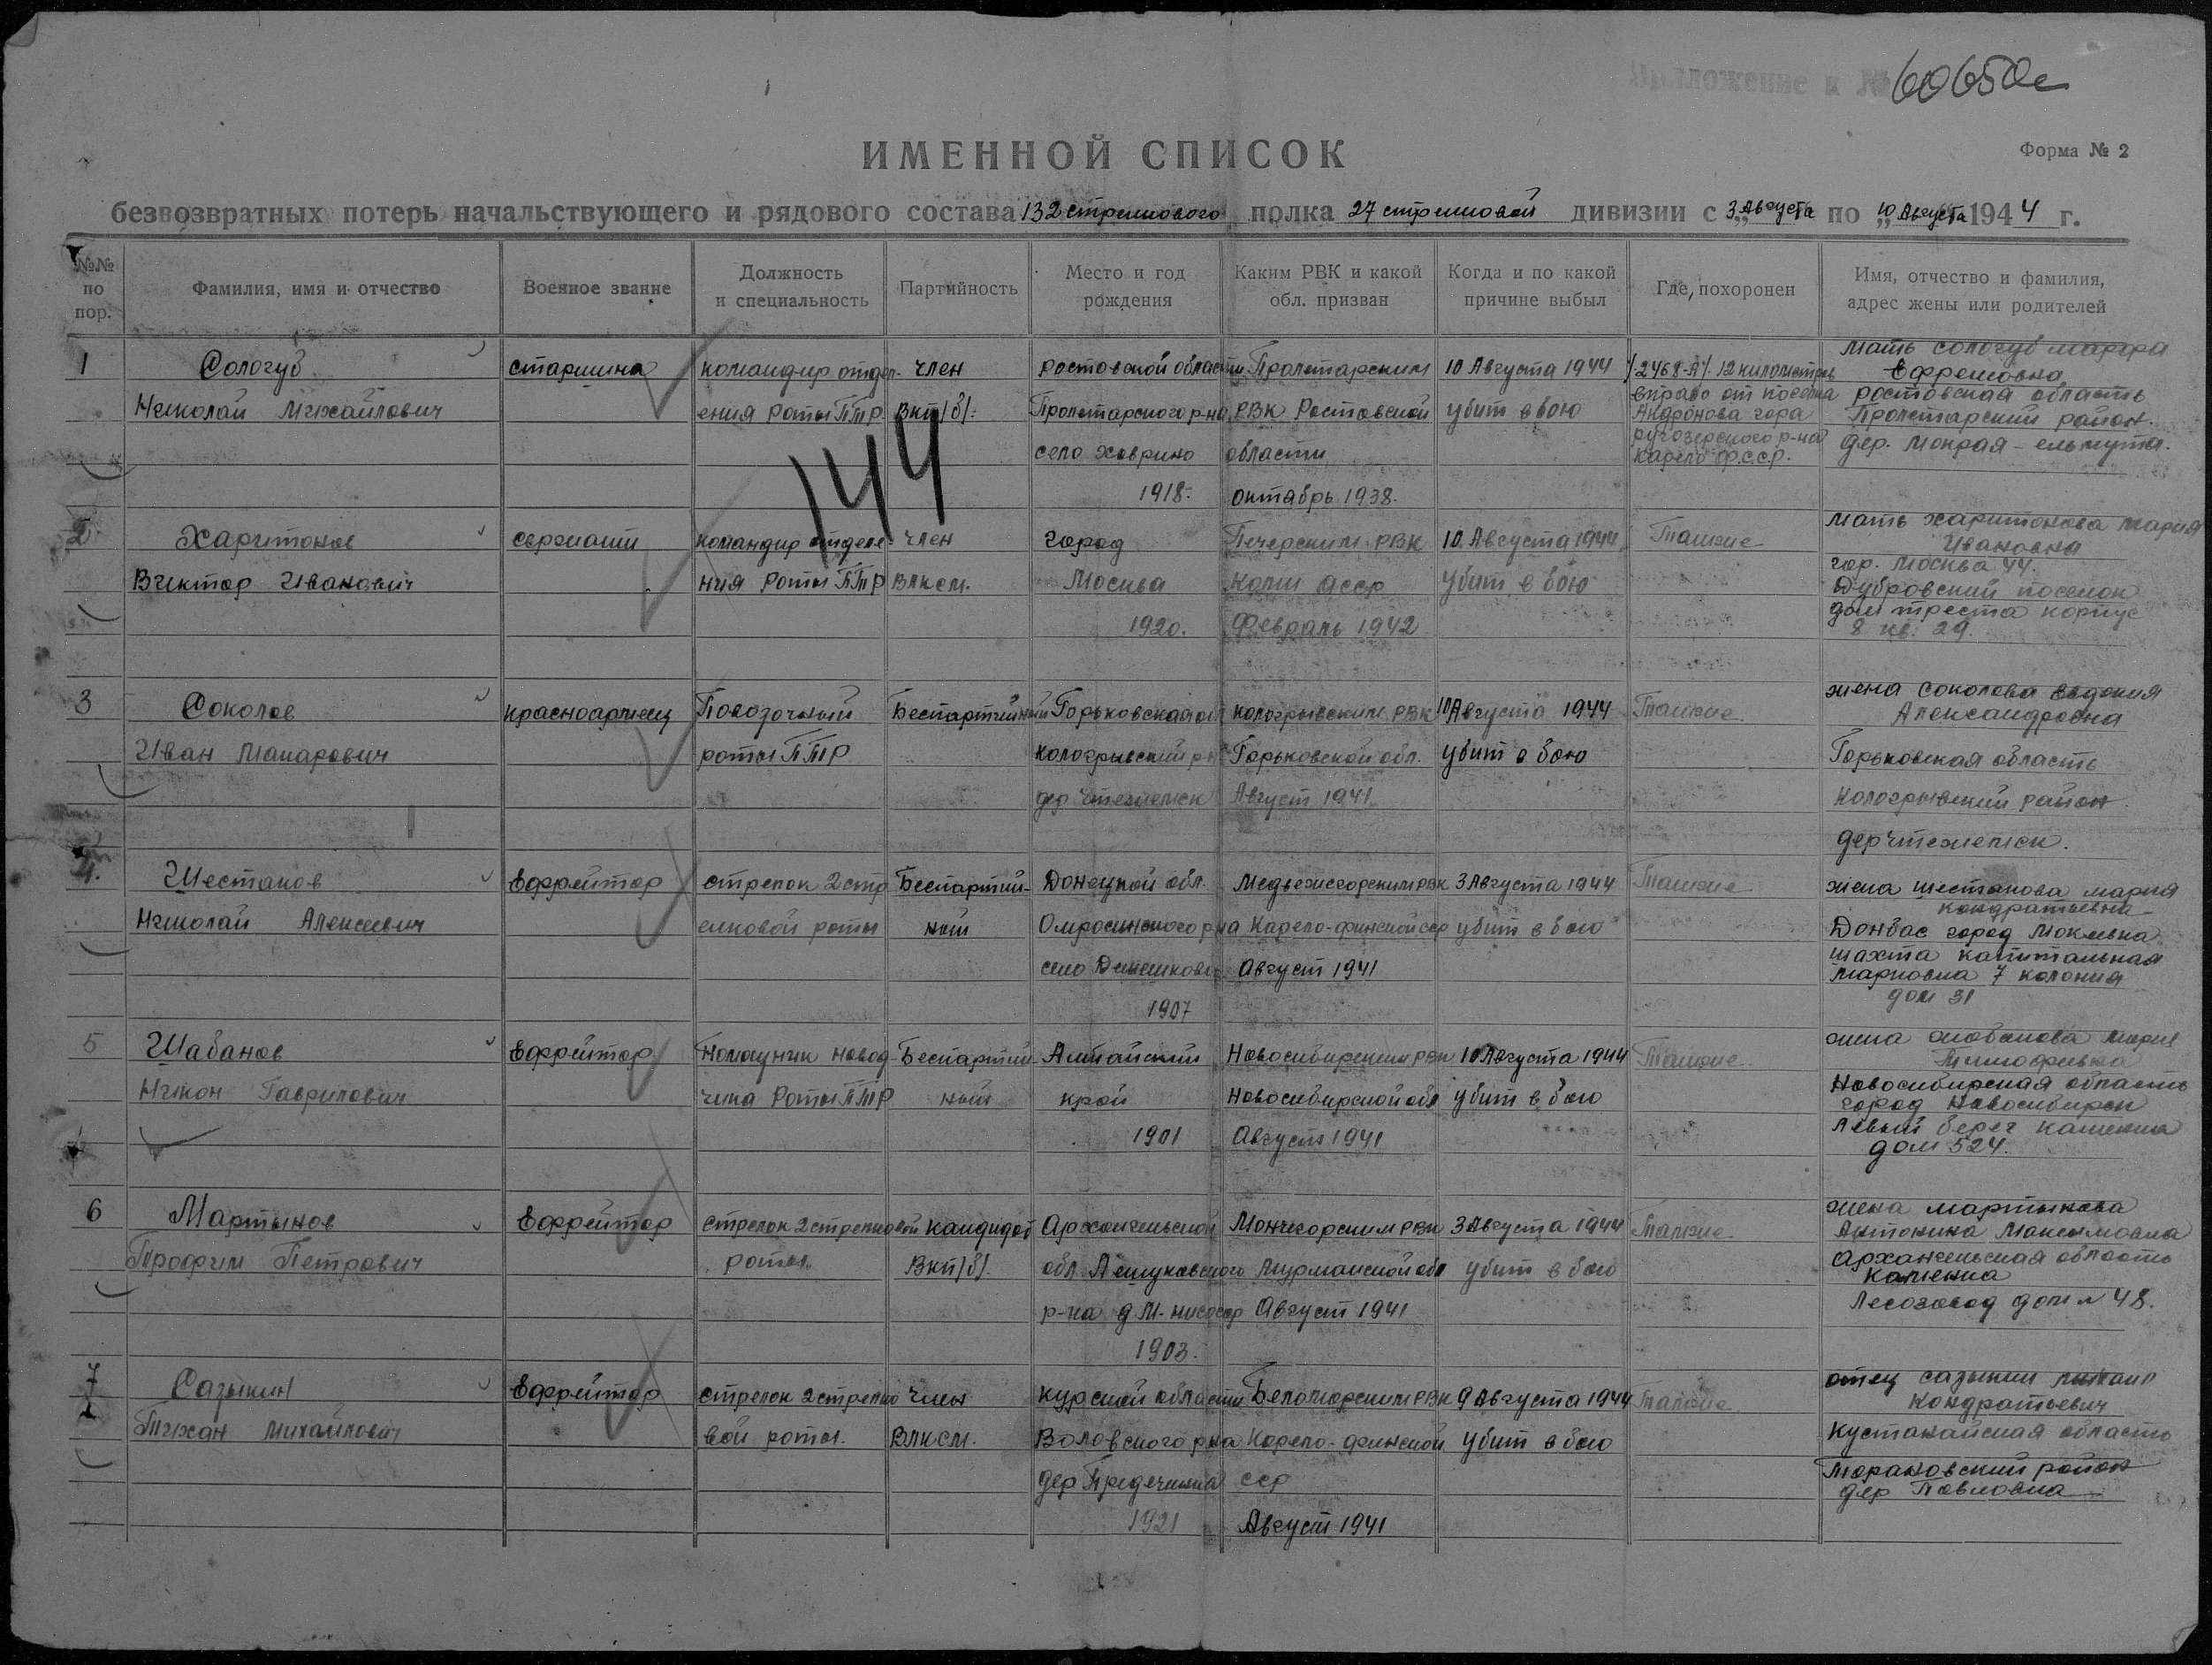 Приложение к № 60650с
ИМЕННОЙ СПИСОК
Форма № 2
безвозвратных потерь начальствующего и рядового состава 132 стрелкового полка 27 стрелковой дивизии с „3" Августа по „10" Августа 1944 г.
№№ по пор.
Фамилия, имя и отчество
Военное звание
Должность и специальность
Партийность
Место и год рождения
Каким РВК и какой обл. призван
Когда и по какой причине выбыл
Где похоронен
Имя, отчество и фамилия, адрес жены или родителей
144
1
Сологуб
Николай Михайлович
старшина
командир отдел-
ения роты ПТР
член
ВКП/б/.
Ростовской области
Пролетарского р-на
село Хаврино
1918.
Пролетарским
РВК Ростовской
области
октябрь 1938.
10 Августа 1944
убит в бою
/2468-А/. 12 километров
вправо от поселка
Андронова гора
Ругозерского р-на
Карело Ф.С.С.Р.
Мать Сологуб Марфа
Ефремовна
Ростовская область
Пролетарский район.
дер. Мокрая-ельмута.
2.
Харитонов
Виктор Иванович
сержант
командир отделе-
ния роты ПТР
член
ВЛКСМ.
город
Москва
1920.
Печерским РВК
Коми АССР
Февраль 1942
10 Августа 1944
убит в бою
Також
Мать Харитонова Мария
Ивановна
гор. Москва 44.
Дубровский поселок
дом треста корпус
8 кв. 29.
3
Соколов
Иван Макарович
красноармеец
Повозочный
роты ПТР
Беспартийный
Горьковская обл
Кологрывский р-н
дер
Кологрывским РВК
Горьковской обл.
Август 1941
10 Августа 1944
убит в бою
Также
жена Соколова Евдокия
Александровна
Горьковская область
Кологрывский район.
дер
4.
Шестаков
Николай Алексеевич
Ефрейтор
стрелок 2 стр
елковой роты
Беспартий-
ный
Донецкой обл.
село
1907
Медвежегорским РВК
Карело-финской сср
Август 1941
3 Августа 1944
убит в бою
Также
жена Шестакова Мария
Кондратьевна
Донбас город Мокеевка
шахта капитальная
7 колония
дом 31
5
Шабанов
Никон Гаврилович
Ефрейтор
Помощник навод-
чика Роты ПТР
Беспартий-
ный
Алтайский
край
1901
Новосибирским РВК
Новосибирской обл
Август 1941
10 Августа 1944
убит в бою
Также
жена Шабанова Мария
Тимофеевна
Новосибирская область
город Новосибирск
Левый берег
дом 524.
6
Мартынов
Трофим Петрович
Ефрейтор
стрелок 2 стрелковой
роты.
Кандидат
ВКП/б/.
Архангельской
обл. Лешуковского
р-на
1903.
Мончегорским РВК
Мурманской обл
Август 1941
3 Августа 1944
убит в бою
Также
жена Мартынова
Антонина Максимовна
Архангельская область
Каменка
Лесозавод дом № 48.
7
Сазыкин
Тихан Михайлович
Ефрейтор
стрелок 2 стрелко
вой роты.
член
ВЛКСМ.
Курской области
Воловского р-на
дер
1921
Беломорским РВК
Карело-финской
сср
Август 1941
9 Августа 1944
убит в бою
Также
отец Сазыкин Михаил
Кондратьевич
Кустанайская область
Тарановский район
дер Павловка